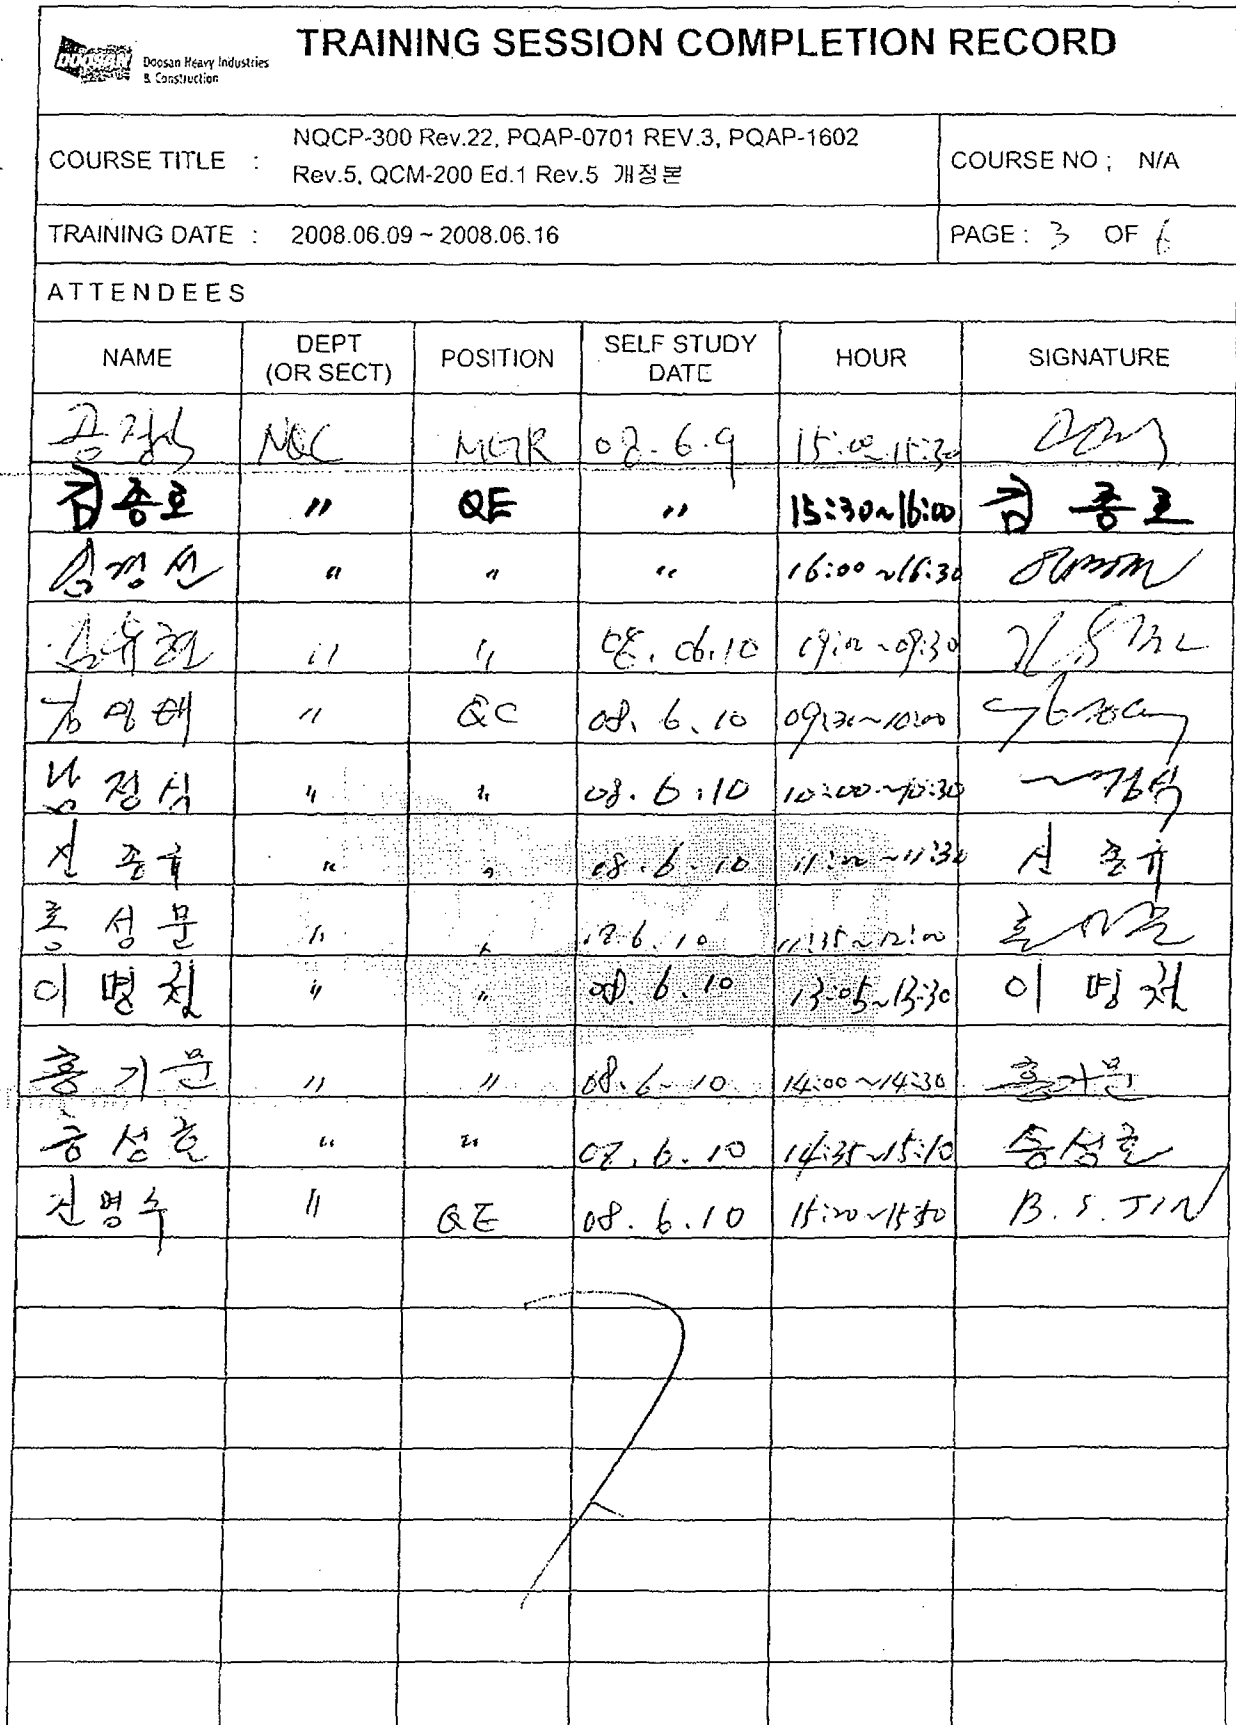 DOOSAN Doosan Heavy Industries
& Construction
TRAINING SESSION COMPLETION RECORD
COURSE TITLE : NQCP-300 Rev.22, PQAP-0701 REV.3, PQAP-1602
Rev.5, QCM-200 Ed.1 Rev.5 개정본
COURSE NO ; N/A
TRAINING DATE : 2008.06.09 ~ 2008.06.16 PAGE : 3 OF 6
ATTENDEES
NAME DEPT (OR SECT) POSITION SELF STUDY DATE HOUR SIGNATURE
NQC MGR 08.6.9 15:00~15:30
김종로 〃 QE 〃 15:30~16:00 김종로
〃 〃 〃 16:00~16:30
〃 〃 08.06.10 09:00~09:30
〃 QC 08.6.10 09:30~10:00
남정식 〃 〃 08.6.10 10:00~10:30
신종규 〃 〃 08.6.10 11:00~11:30 신종규
홍성문 〃 〃 08.6.10 11:35~12:00
이명철 〃 〃 08.6.10 13:05~13:30 이명철
홍기문 〃 〃 08.6.10 14:00~14:30 홍기문
송성호 〃 〃 08.6.10 14:35~15:10 송성호
진병수 〃 QE 08.6.10 15:20~15:50 B.S.JIN